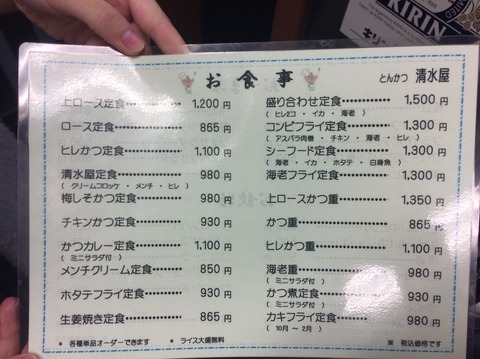 KIRIN
お食事
とんかつ 清水屋
上ロース定食 1,200 円
ロース定食 865 円
ヒレかつ定食 1,100 円
清水屋定食 980 円
( クリームコロッケ ・ メンチ ・ ヒレ )
梅しそかつ定食 980 円
チキンかつ定食 930 円
かつカレー定食 1,100 円
( ミニサラダ付 )
メンチクリーム定食 850 円
ホタテフライ定食 930 円
生姜焼き定食 980 円
* 各種単品オーダーできます * ライス大盛無料
盛り合わせ定食 1,500 円
( ヒレ2コ ・ イカ ・ 海老 )
コンビフライ定食 1,300 円
( アスパラ肉巻 ・ チキン ・ 海老 ・ ヒレ )
シーフード定食 1,300 円
( 海老 ・ イカ ・ ホタテ ・ 白身魚 )
海老フライ定食 1,300 円
上ロースかつ定食 1,350 円
かつ重 865 円
ヒレかつ重 1,100 円
海老重 980 円
( ミニサラダ付 )
かつ煮定食 930 円
( ミニサラダ付 )
カキフライ定食 980 円
( 10月 ~ 2月 )
※ 税込価格です